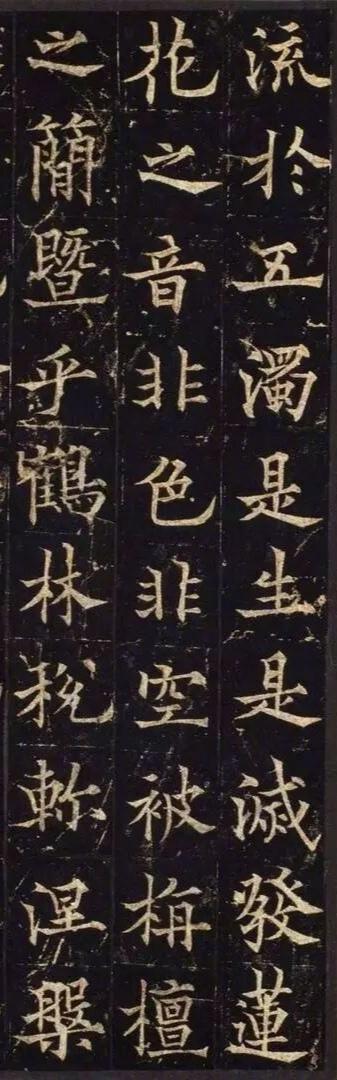 流於五濁是生是滅發蓮
花之音非色非空被栴檀
之簡暨乎鶴林稅軫涅槃